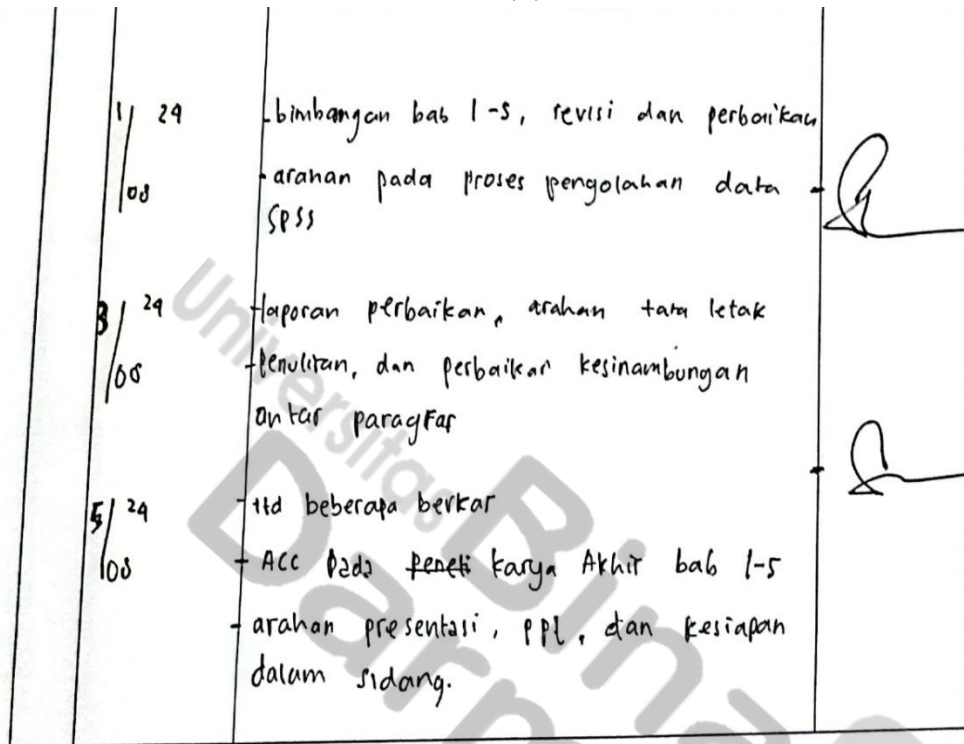 1/08 24
- bimbangan bab 1-5, revisi dan perbaikan
- arahan pada proses pengolahan data
SPSS
3/08 24
- laporan perbaikan, arahan tata letak
- penulisan, dan perbaikan kesinambungan
antar paragraf
5/08 24
- ttd beberapa berkas
- ACC pada peneli karya Akhir bab 1-5
- arahan presentasi, PPL, dan kesiapan
dalam sidang.
Universitas
Bina
Darma